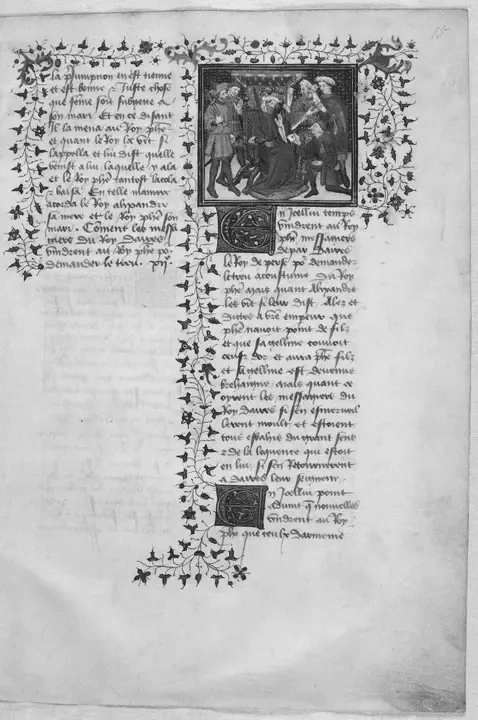 15
la presumpcion en est tienne
et est bonne & Juste chose
que feme soit subgecte a
son mari. Et en ce disant
Il la mena au Roy phe
et quant le Roy la vit si
lappella et lui dist quelle
venist a lui laquelle y ala
et le Roy phe tantost lacola
& baisa. En telle maniere
acorda le Roy alixandre
sa mere et le Roy phe son
mari. Coment les messa
giers du Roy daires
vindrent au Roy phe po
demander le treu. xvij.
En Icellui temps
vindrent au Roy
phe messagiers
de par daires
le Roy de perse po demander
le treu acoustume du Roy
phe mais quant alixandre
les vit si leur dist. Alez et
dittes a vre empeur que
phe navoit point de filz
et que sa gelline couvoit
oeufs dor et aura phe filz
et sa gelline est devenue
brehaigne. mais quant ce
oyrent les messagiers du
Roy daires si sen esmerveil
lerent moult et estoient
tous esbahis du grant sens
& de la loquence qui estoit
en lui, si sen Retournerent
a daires leur seigneur.
En Icellui point
advint q nouvelles
vindrent au Roy
phe que ceulx darmenie